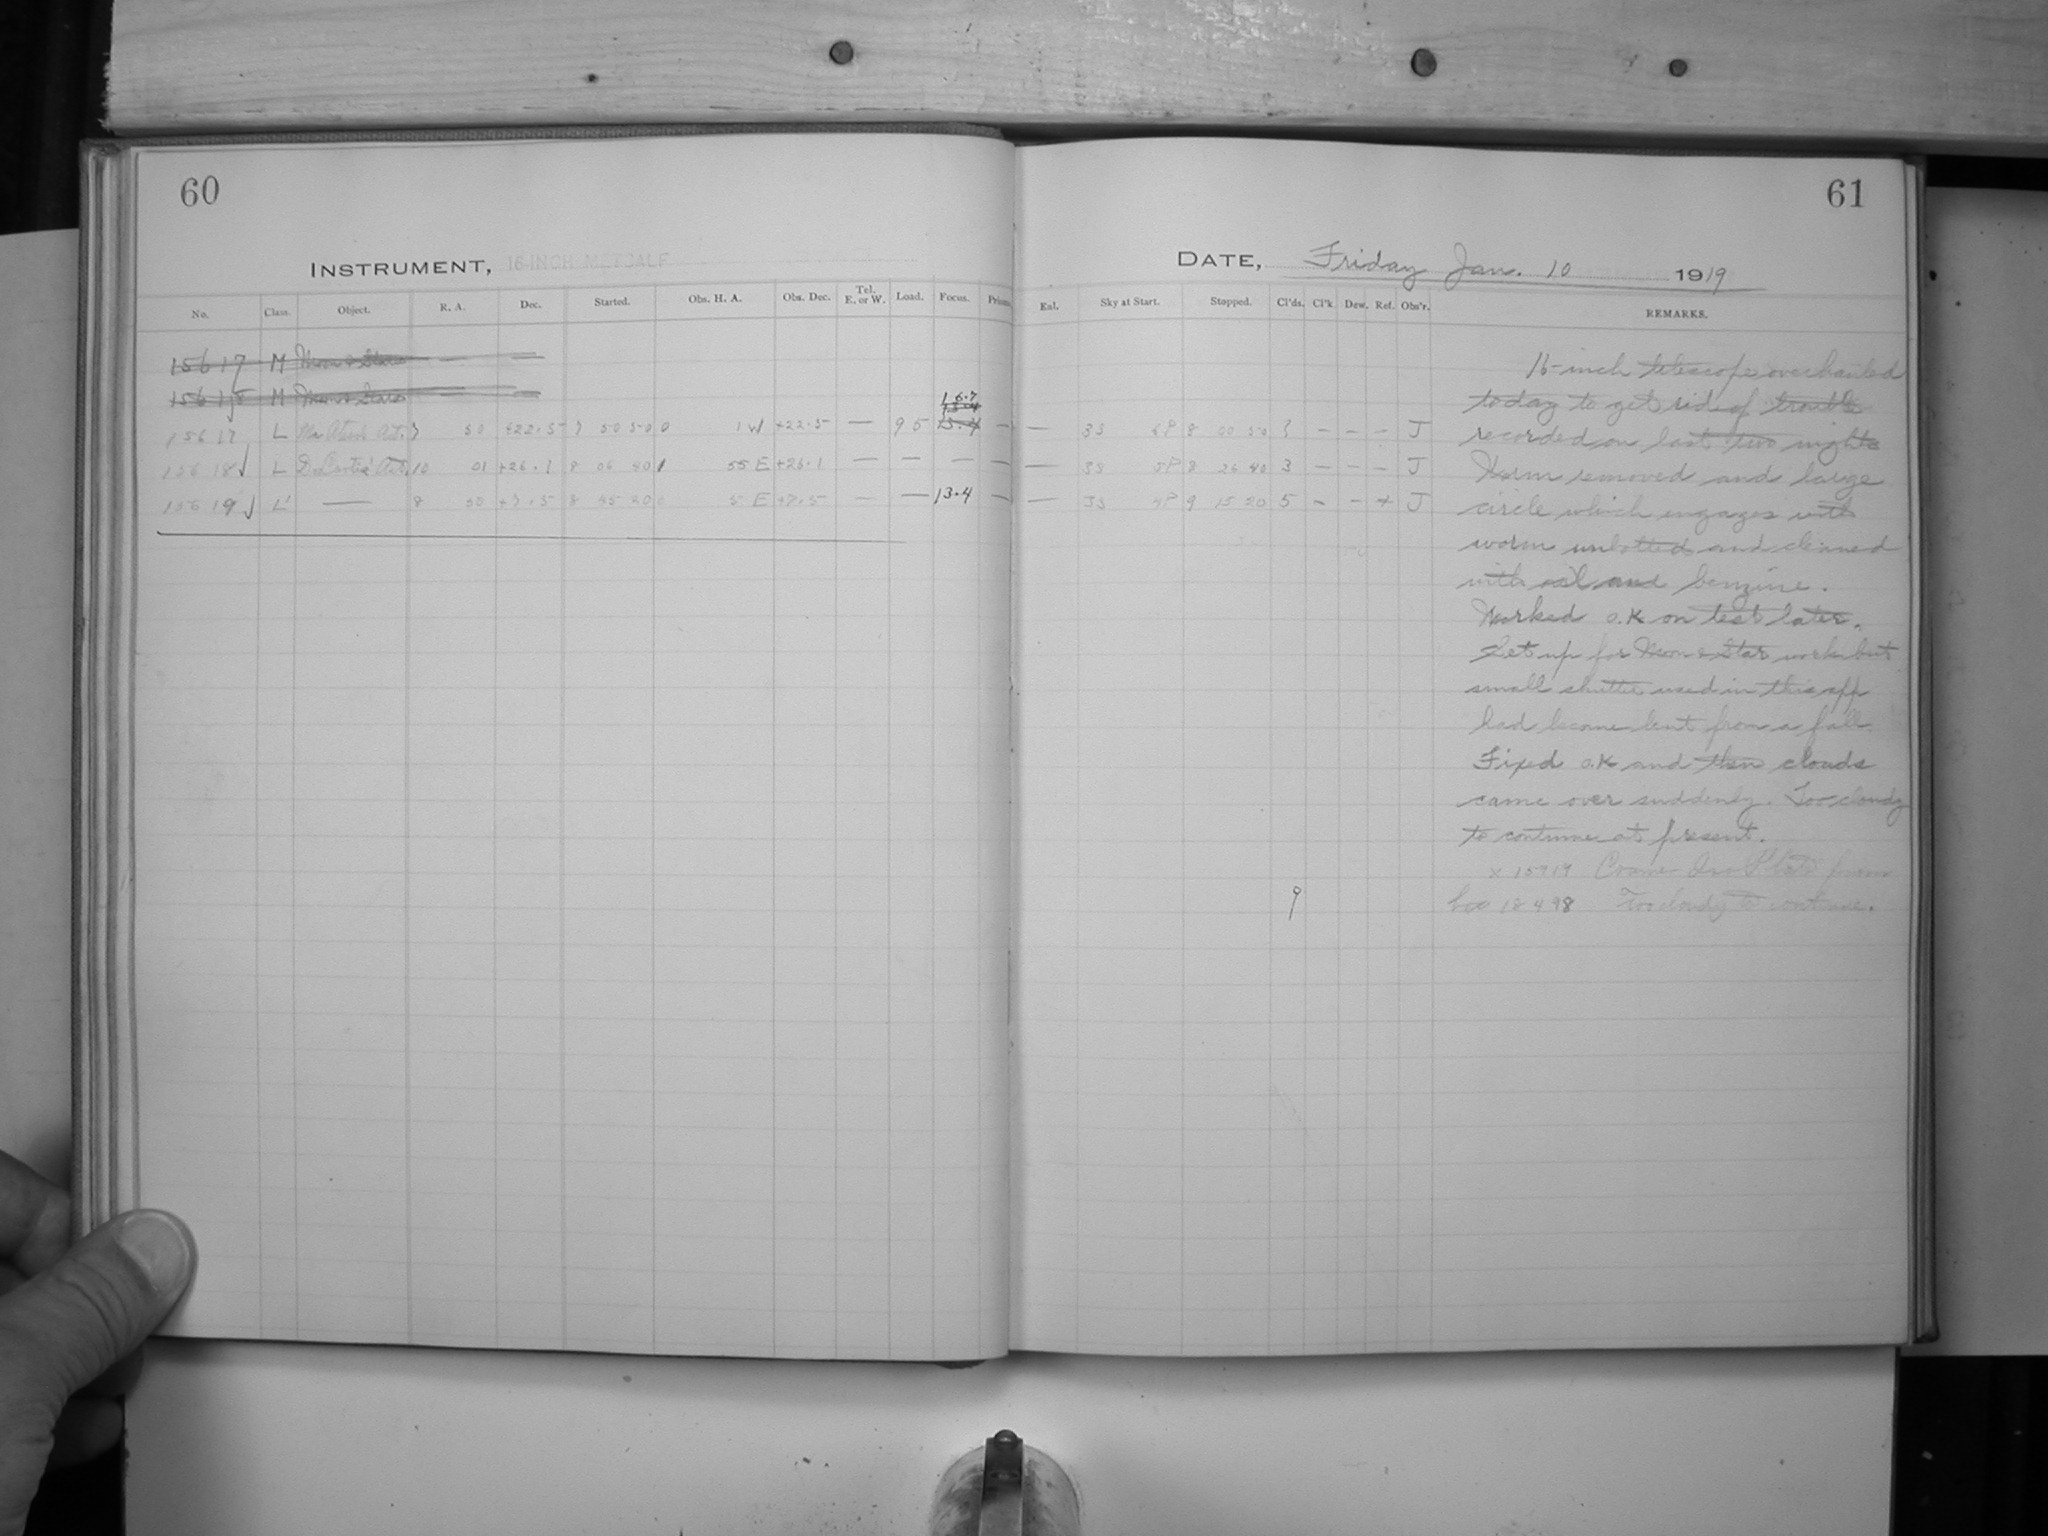 60
INSTRUMENT, 16-INCH METCALF
No. Class. Object. R. A. Dec. Started. Obs. H. A. Obs. Dec. Tel. E. or W. Load. Focus.
15617 M Moon & Stars — —
15618 M Moon & Stars — —
16.7
13.4
15617 L 7 50 +22.5 7 50 50 0 1 W +22.5 — 95 13.4 —
15618 L 10 01 +26.1 8 06 40 1 55 E +26.1 — — — —
15619 L' — 8 50 +7.5 8 35 20 0 5 E +7.5 — — 13.4 —
61
DATE, Friday Jan. 10 1919
Exl. Sky at Start. Stopped. Cl'ds. Cl'k. Dew. Ref. Obs'r. REMARKS.
— 3S 6P 8 00 50 — — — J
— 3S 5P 8 26 40 3 — — — J
— 3S 4P 9 15 20 5 — — + J
16-inch telescope overhauled
today to get rid of trouble
recorded on last two nights
Worm removed and large
circle which engages with
worm unbolted and cleaned
with oil and benzine.
Worked O.K on test later.
Set up for Moon & Star work but
small shutter used in this app
had become bent from a fall
Fixed O.K and then clouds
came over suddenly. Too cloudy
to continue at present.
Cramer Iso Plate from
9 box 18498 Too cloudy to continue.